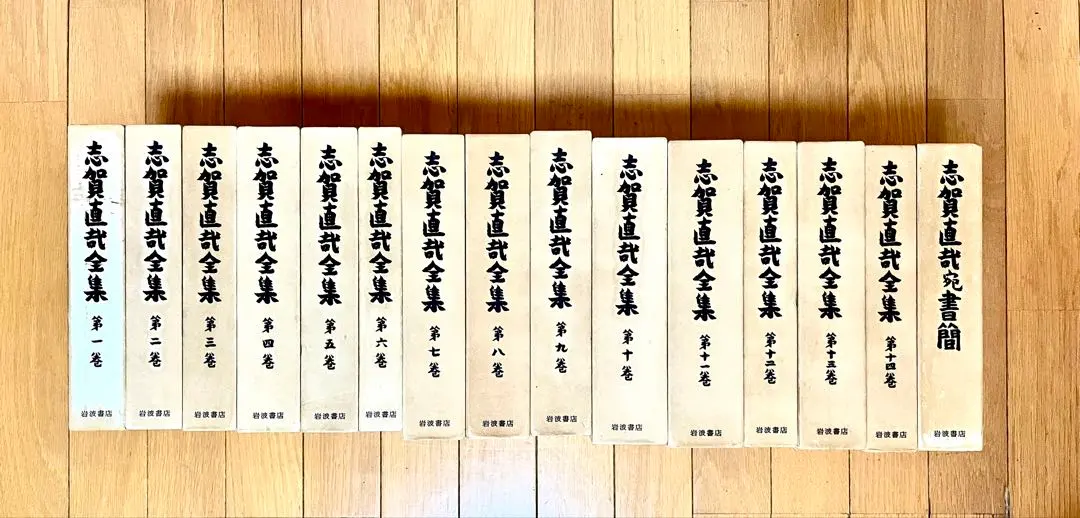 志賀直哉全集 第一巻
岩波書店
志賀直哉全集 第二巻
岩波書店
志賀直哉全集 第三巻
岩波書店
志賀直哉全集 第四巻
岩波書店
志賀直哉全集 第五巻
岩波書店
志賀直哉全集 第六巻
岩波書店
志賀直哉全集 第七巻
岩波書店
志賀直哉全集 第八巻
岩波書店
志賀直哉全集 第九巻
岩波書店
志賀直哉全集 第十巻
岩波書店
志賀直哉全集 第十一巻
岩波書店
志賀直哉全集 第十二巻
岩波書店
志賀直哉全集 第十三巻
岩波書店
志賀直哉全集 第十四巻
岩波書店
志賀直哉宛書簡
岩波書店